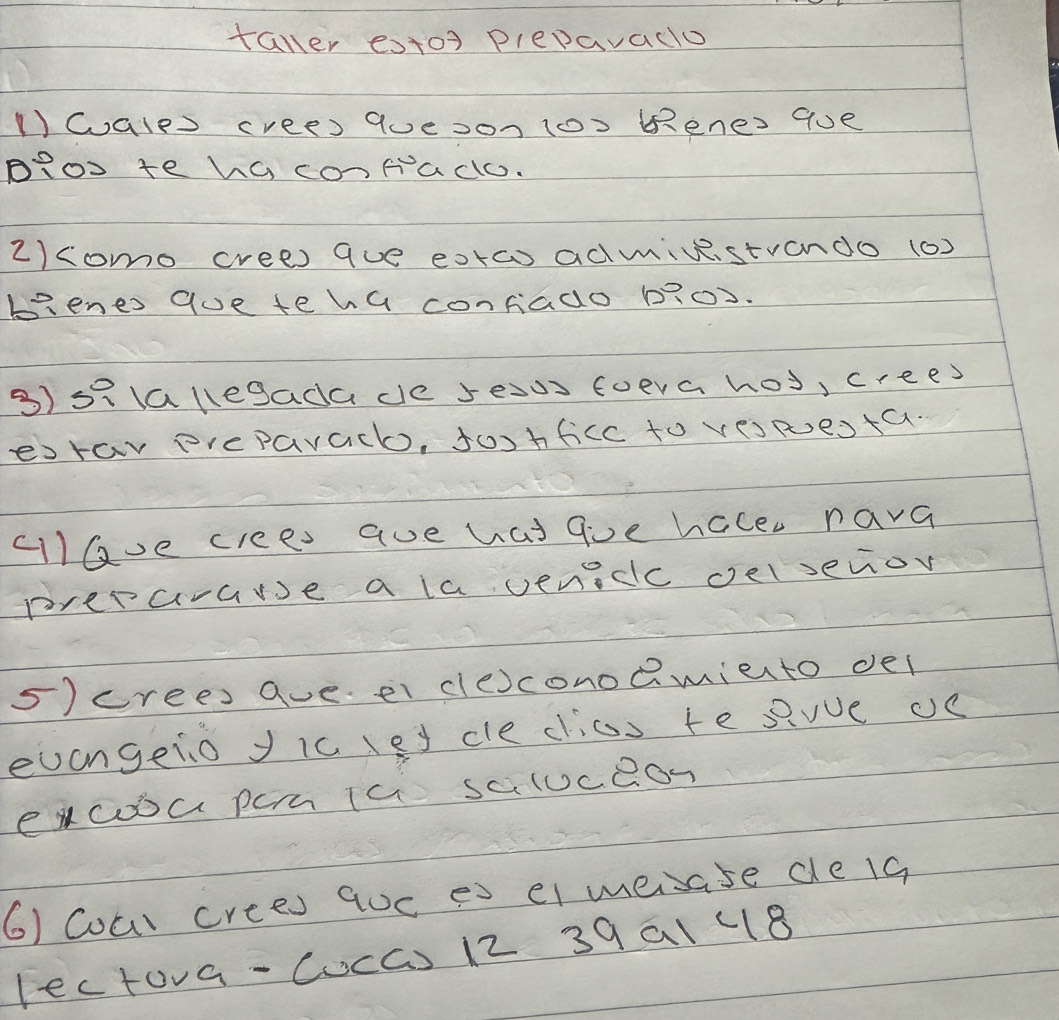 taller estoy preparado
1) Cuales crees que son los bienes que
Dios te ha confiado.
2) como crees que estas administrando los
bienes que te ha confiado Dios.
3) si la llegada de Jesus fuera hoy, crees
estar preparado, justifica tu respuesta.
4) Que crees que hay que hacer para
prepararse a la venida del señor
5) crees que el desconocimiento del
evangelio y la ley de dios te sirve de
excusa para la salvacion
6) Cual crees que es el mensaje de la
lectura - Lucas 12 39 al 48